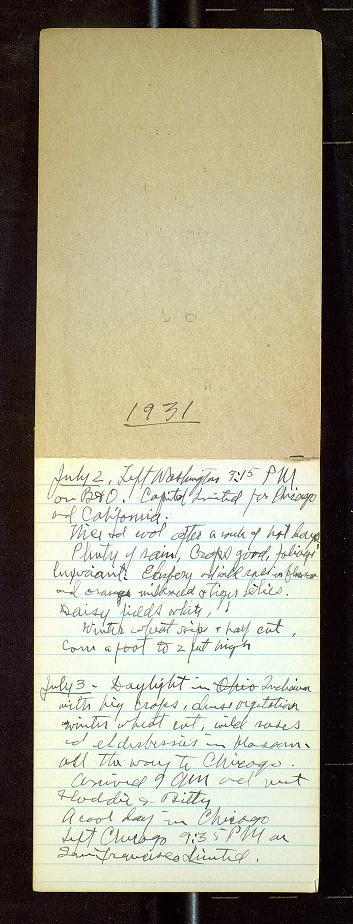 1931
July 2, Left Washington 3:15 PM
on B&O. Capitol Limited for Chicago
and California.
Nice and cool after a week of hot days
Plenty of rain, Crops good, foliage
luxuriant. wild roses in flower
and orange milkweed & tiger lilies.
Daisy fields white,
Winter wheat ripe & hay cut,
Corn a foot to 2 feet high
July 3 - Daylight in Ohio Indiana
with big crops, dense vegetation
winter wheat cut, wild roses
and elderberries in blossom
all the way to Chicago.
arrived 9 AM and met
& Betty
A cool day in Chicago
Left Chicago 9:35 PM on
San Francisco Limited.